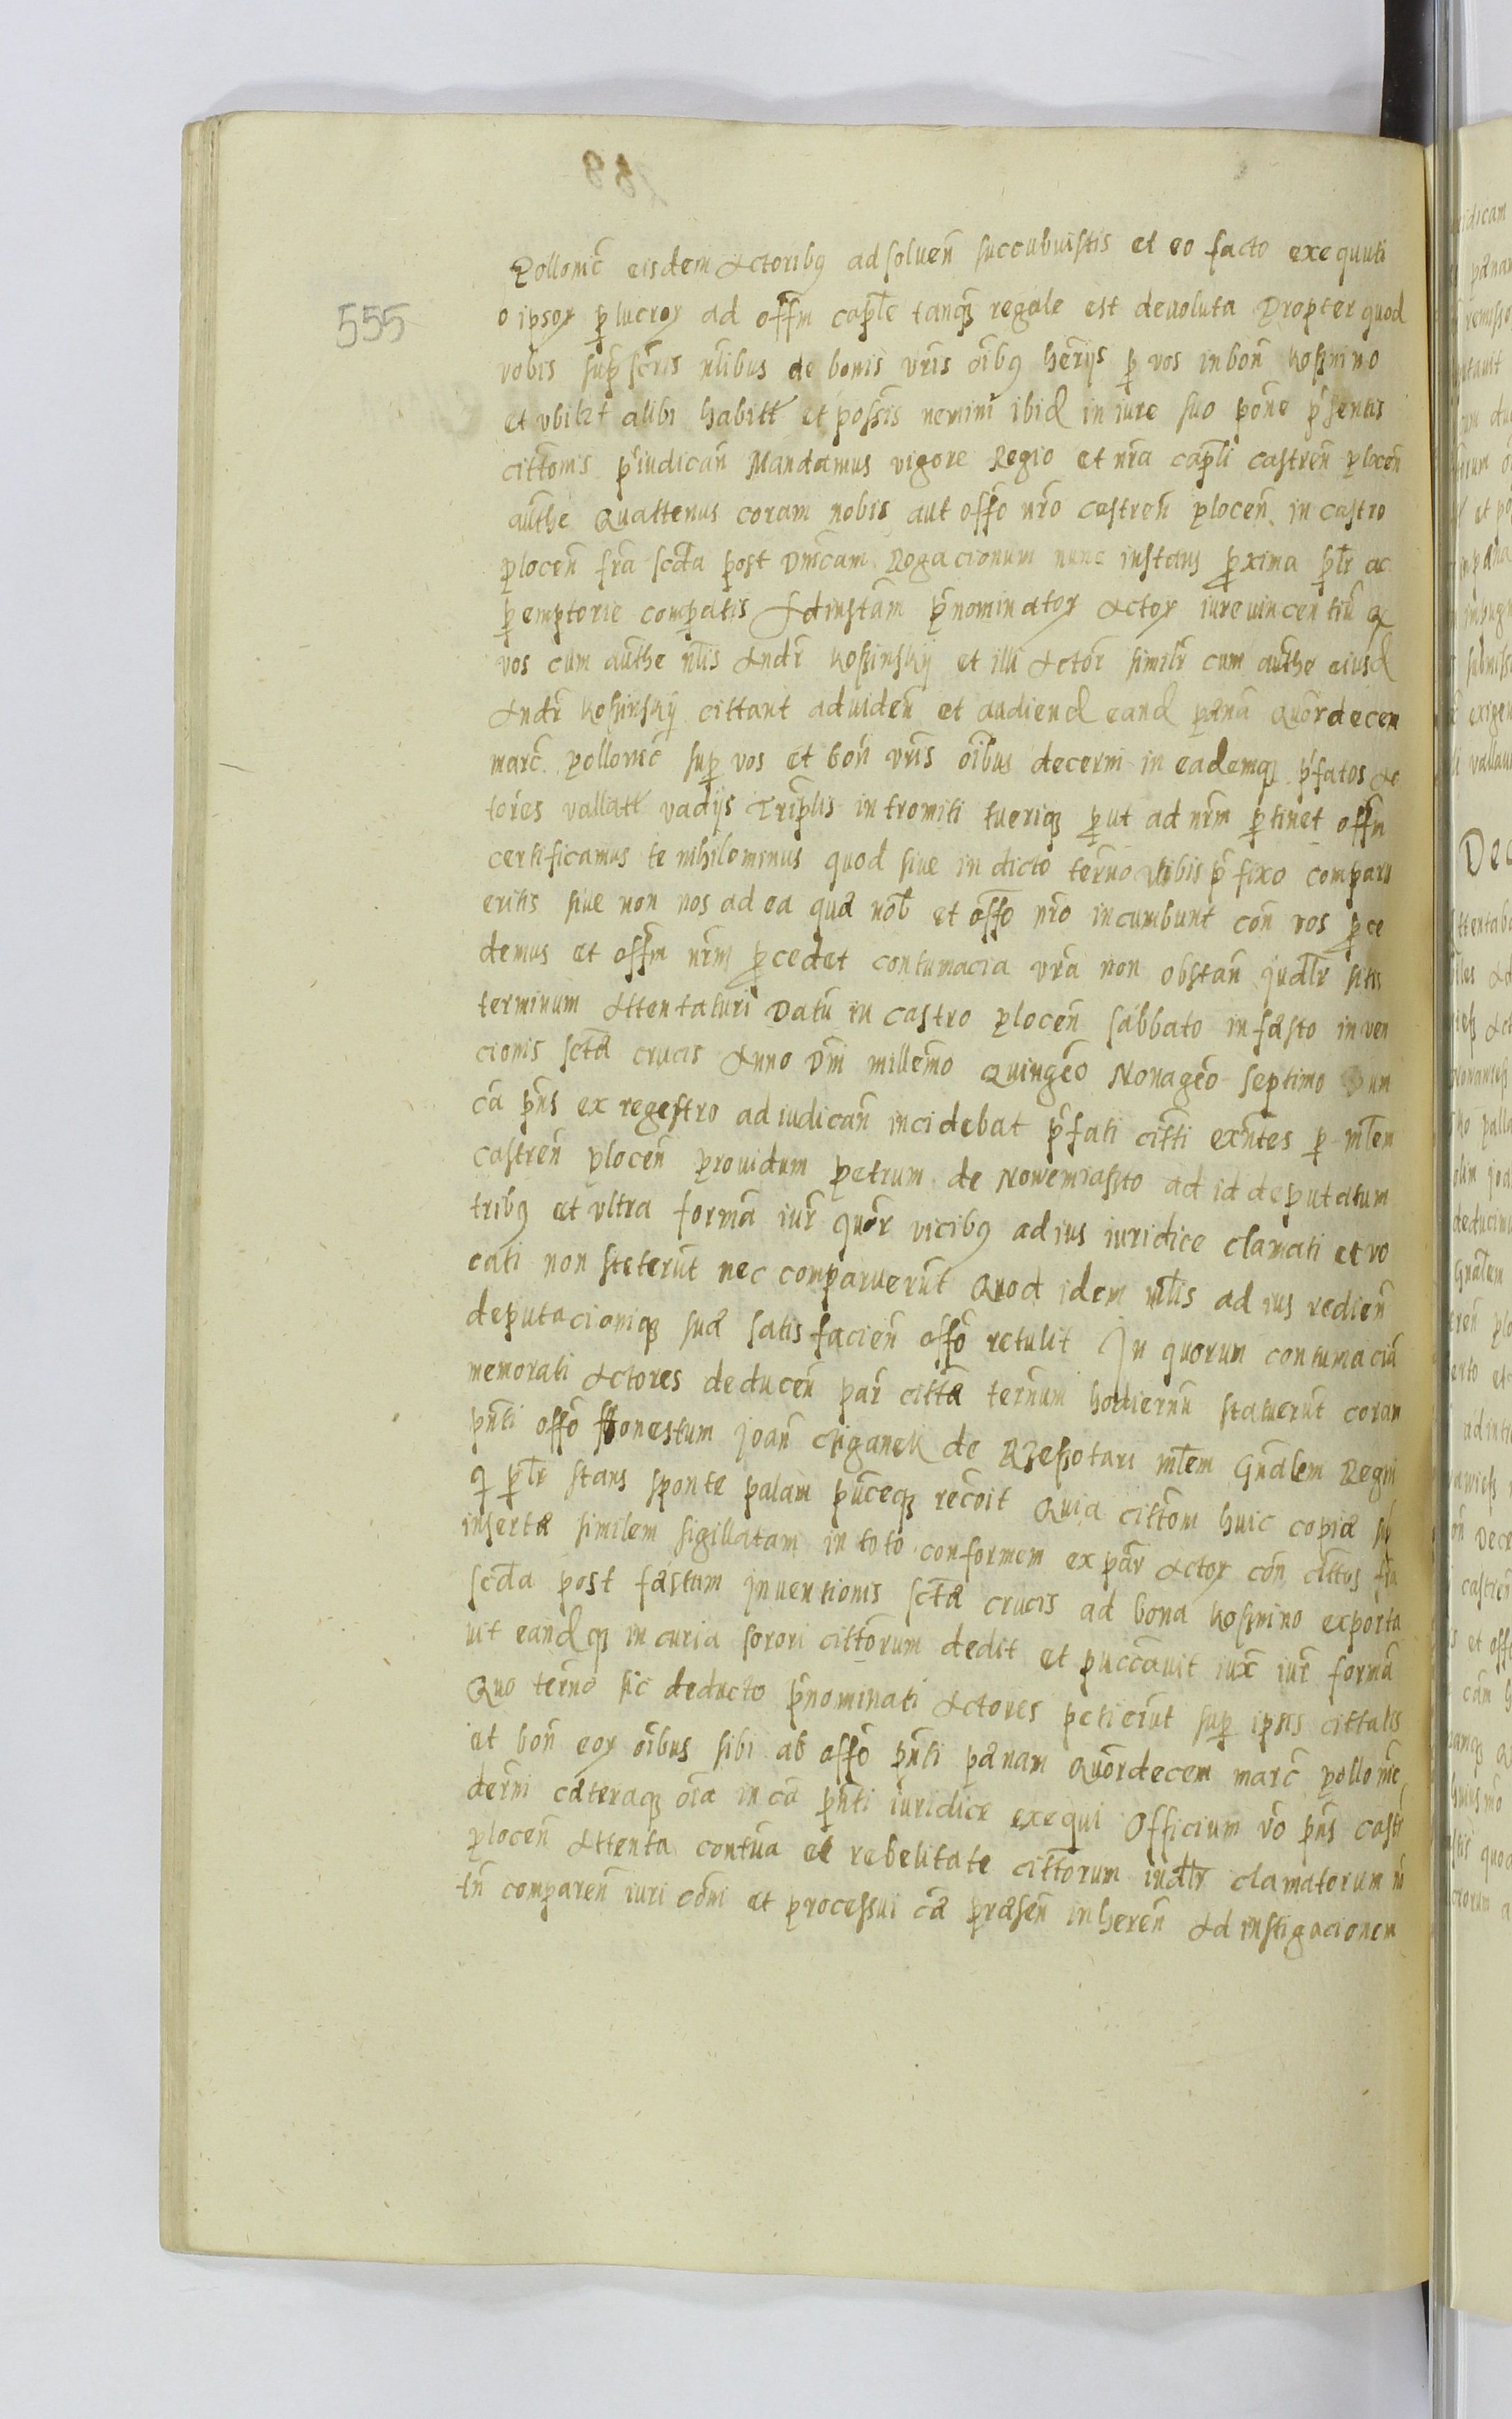 555
Pollonic̄ eisdem Actoribꝯ ad soluen̄ succubuistis et eo facto exequuti
o ipsoꝝ ꝑ lucroꝝ ad off̄m cap̄le tanqꝫ regale est deuoluta Propter quod
vobis sup̄scr̄is n̄libus de bonis vr̄is oībꝯ her̄ijs ꝑ vos in bon̄ Kossnino
et vbilꝫt alibi habitt̄ et possis nemini ibid in iure suo pōne p̄sentis
citt̄onis p̄iudican̄ Mandamus vigore Regio et nr̄a cap̄li castren̄ plocen̄
aut̄he Quattenus coram nobis aut off̄o nr̄o castren̄ plocen̄ in castro
plocen̄ fr̄a sc̄da post Dn̄icam Rogacionum nunc instans ꝓxima pl̄r ac
ꝑemptorie compatis Ad instām p̄nominatoꝝ Actoꝝ iure vincentiū q
vos cum aut̄he n̄lis Andr̄ Kossinskij et illi Actor̄ similr̄ cum aut̄he eiusd
Andr̄ Kossinskij cittant ad viden̄ et audiend eand pænā Quor̄decem
marc̄ pollonic̄ sup̄ vos et bon̄ vr̄is oībus decerni in eademqꝫ p̄fatos Ac
tores vallatt̄ vadijs Triplis intromiti tueriqꝫ ꝓut ad nr̄m ꝑtinet off̄m
certificamus te nihilominus quod siue in dicto ter̄no vobis p̄fixo comparu
eritis siue non nos ad ea quæ nob̄ et off̄o nr̄o incumbunt con̄ vos ꝓce
demus et off̄m nr̄m ꝓcedet contumacia vr̄a non obstan̄ Judlr̄ sitis
terminum Attentaturi Datū in castro plocen̄ Sabbato in fæsto inuen
cionis sctæ crucis Anno Dn̄i millemo Quingeō Nonageō septimo Dum
cā p̄ns ex regestro ad iudican̄ incidebat p̄fati citt̄i exn̄tes ꝑ mlēm
castren̄ plocen̄ prouidum petrum de Nowemiassto ad id deputatum
tribꝯ et vltra formā iur̄ quor̄ vicibꝯ ad ius iuridice clamati et vo
cati non steterūt nec comparuerūt Quod idem mlis ad ius redien̄
deputacioniqꝫ suæ satisfacien̄ off̄o retulit In quorum contumaciā
memorati Actores deducen̄ par̄ cittæ ter̄num hodiernū statuerūt coram
pn̄ti off̄o honestum Joan̄ Cziganek de Rzeszotari mlēm Gn̄alem Regni
q pl̄r stans sponte palam pūceqꝫ recoīt Quia citt̄om huic copiæ sub
insertæ similem sigillatam in toto conformem ex par̄ Actoꝝ con̄ cittos fra
sc̄da post fæstum Inuentionis sctæ crucis ad bona Kossnino exporta
uit eandqꝫ in curia sorori citt̄orum dedit et puccāuit iux̄ iur̄ formā
Quo ter̄no sic deducto p̄nominati Actores petierūt sup̄ ipsis cittatis
et bon̄ eoꝝ oībus sibi ab off̄o pn̄ti pænam Quor̄decem marc̄ pollonic̄
derni cæteraqꝫ oīa in cā pn̄ti iuridice exequi Officium vo p̄ns castr̄
plocen̄ Attenta contūa et rebelitate citt̄orum iudlr̄ clamatorum n̄
tn̄ comparen̄ iuri cōni et processui cæ præsen̄ inheren̄ Ad instigacionem